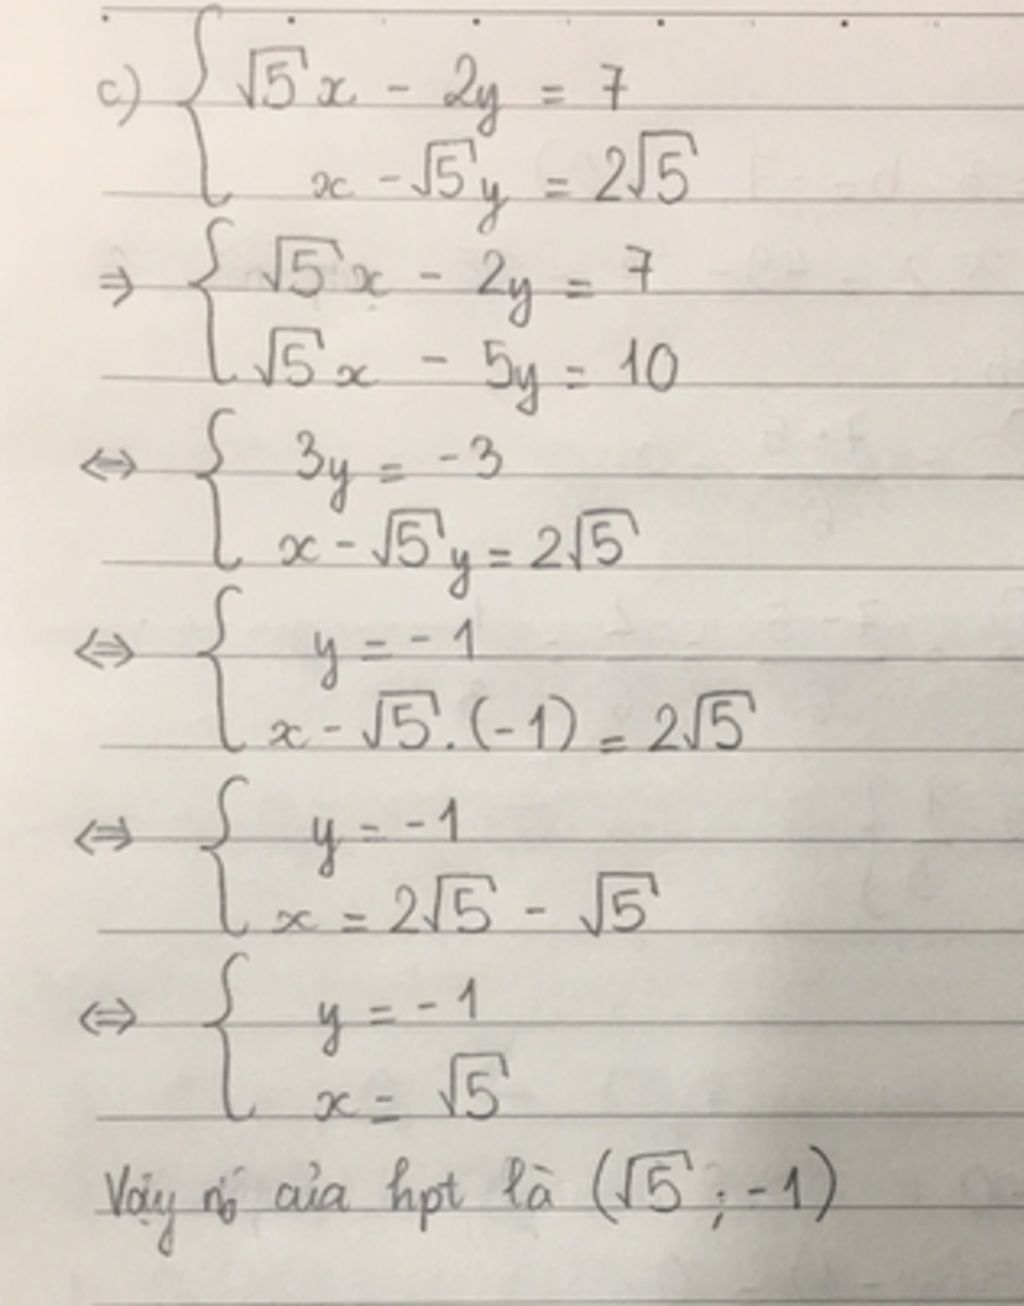 c) { √5x - 2y = 7
x - √5y = 2√5
⇒ { √5x - 2y = 7
√5x - 5y = 10
⇔ { 3y = -3
x - √5y = 2√5
⇔ { y = -1
x - √5.(-1) = 2√5
⇔ { y = -1
x = 2√5 - √5
⇔ { y = -1
x = √5
Vậy nº của hpt là (√5 ; -1)